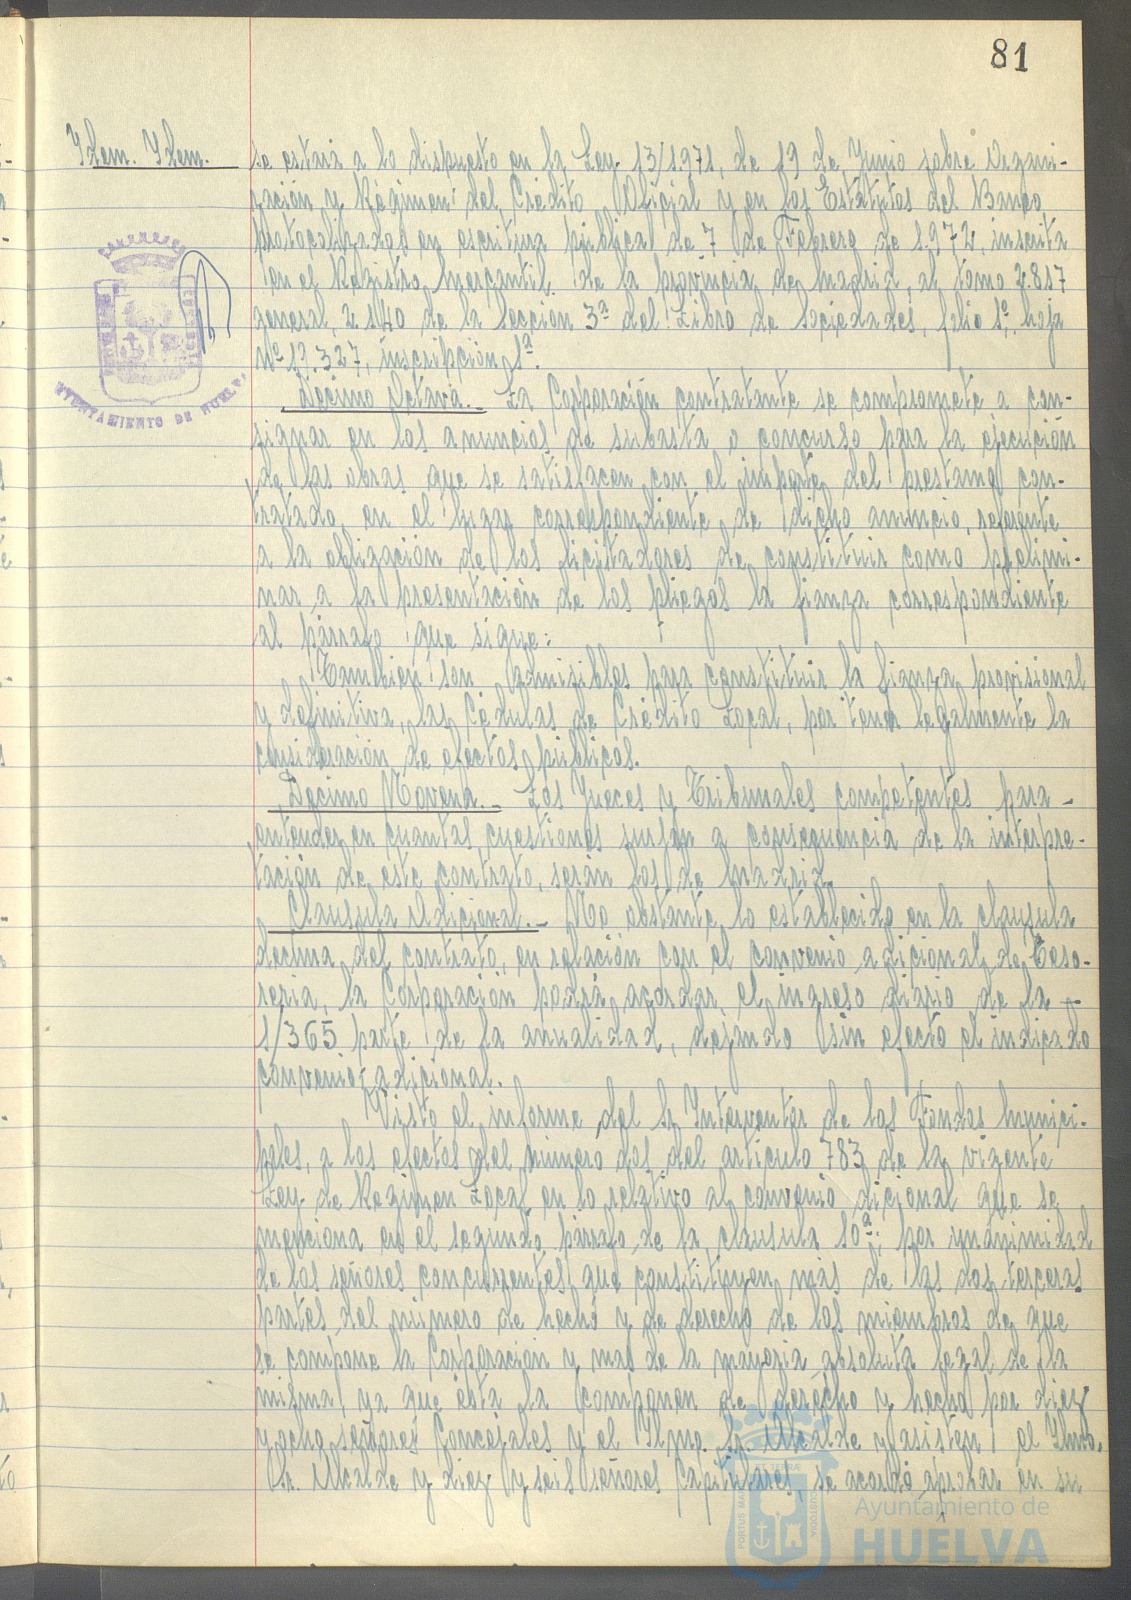 81
Idem. Idem.
se estará a lo dispuesto en la Ley 13/1.971, de 19 de Junio sobre Organi-
zación y Régimen del Crédito Oficial y en los Estatutos del Banco
protocolizados en escritura pública de 7 de Febrero de 1.972, inscrita
en el Registro Mercantil de la provincia de Madrid, al tomo 2.817
general, 2.140 de la Sección 3ª del Libro de Sociedades, folio 1º, hoja
Nº 19.327, inscripción 1ª.
Décimo Octava.- La Corporación contratante se compromete a con-
signar en los anuncios de subasta o concurso para la ejecución
de las obras que se satisfacen con el importe del prestamo con-
tratado, en el lugar correspondiente de dicho anuncio, referente
a la obligación de los licitadores de constituir como prelimi-
nar a la presentación de los pliegos la fianza correspondiente
al párrafo que sigue:
Tambien son admisibles para constituir la fianza provisional
y definitiva, las Cédulas de Crédito Local, por tener legalmente la
consideración de efectos públicos.
Décimo Novena.- Los Jueces y Tribunales competentes para
entender en cuantas cuestiones surjan a consecuencia de la interpre-
tación de este contrato, serán los de Madrid.
Clausula Adicional.- No obstante lo establecido en la clausula
decima del contrato, en relación con el convenio adicional de Teso-
reria, la Corporación podrá acordar el ingreso diario de la
1/365 parte de la anualidad, dejando sin efecto el indicado
convenio adicional.
Visto el informe del Sr Interventor de los Fondos Munici-
pales, a los efectos del número dos del articulo 783 de la vigente
Ley de Regimen Local en lo relativo al convenio dicional que se
menciona en el segundo párrafo de la clausula 10ª; por unanimidad
de los señores concurrentes que constituyen más de las dos terceras
partes del número de hecho y de derecho de los miembros de que
se compone la Corporación y mas de la mayoria absoluta legal de la
misma, ya que esta la componen de derecho y hecho por diez
y ocho señores Concejales y el Ilmo. Sr Alcalde y asisten el Ilmo.
Sr. Alcalde y diez y seis señores Capitulares, se acordó aprobar en su
AYUNTAMIENTO DE HUELVA
PORTUS MARIS ET TERRAE CUSTODIA
Ayuntamiento de
HUELVA